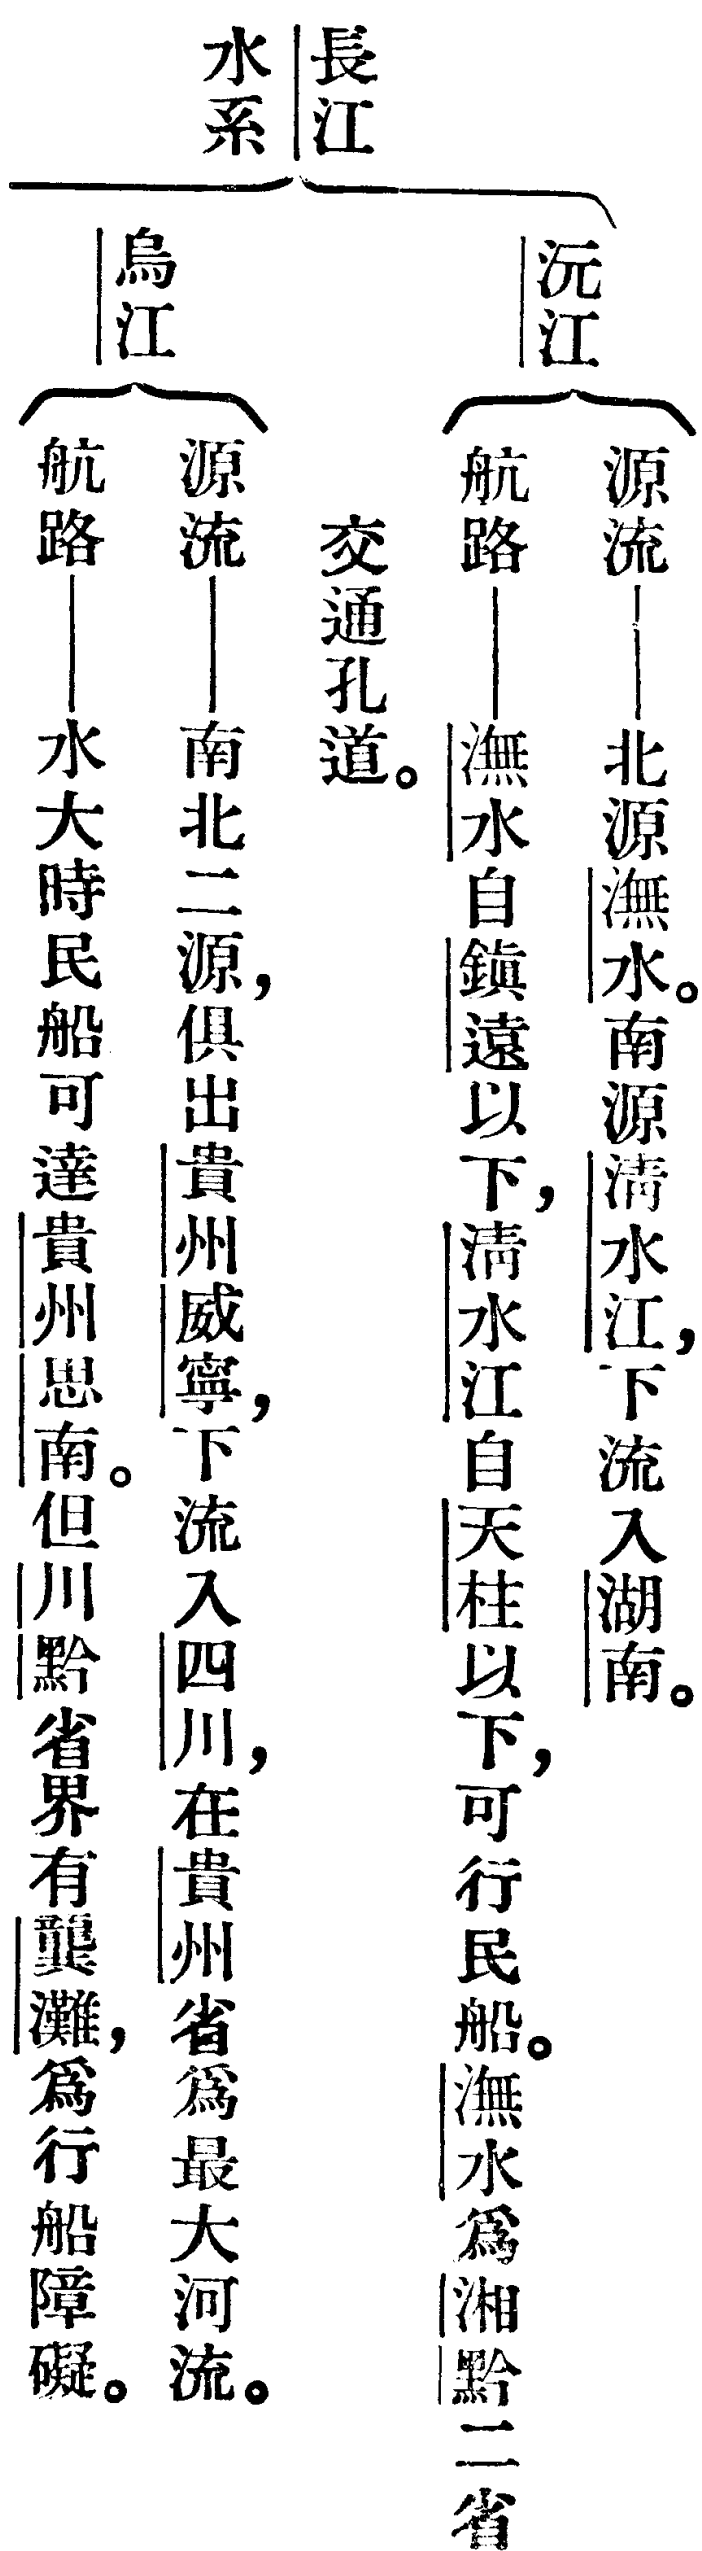 長江
水系
沅江
源流——北源潕水。南源淸水江，下流入湖南。
航路——潕水自鎭遠以下，淸水江自天柱以下，可行民船。潕水爲湘黔二省
交通孔道。
烏江
源流——南北二源，俱出貴州威寧，下流入四川，在貴州省爲最大河流。
航路——水大時民船可達貴州思南。但川黔省界有龔灘，爲行船障礙。